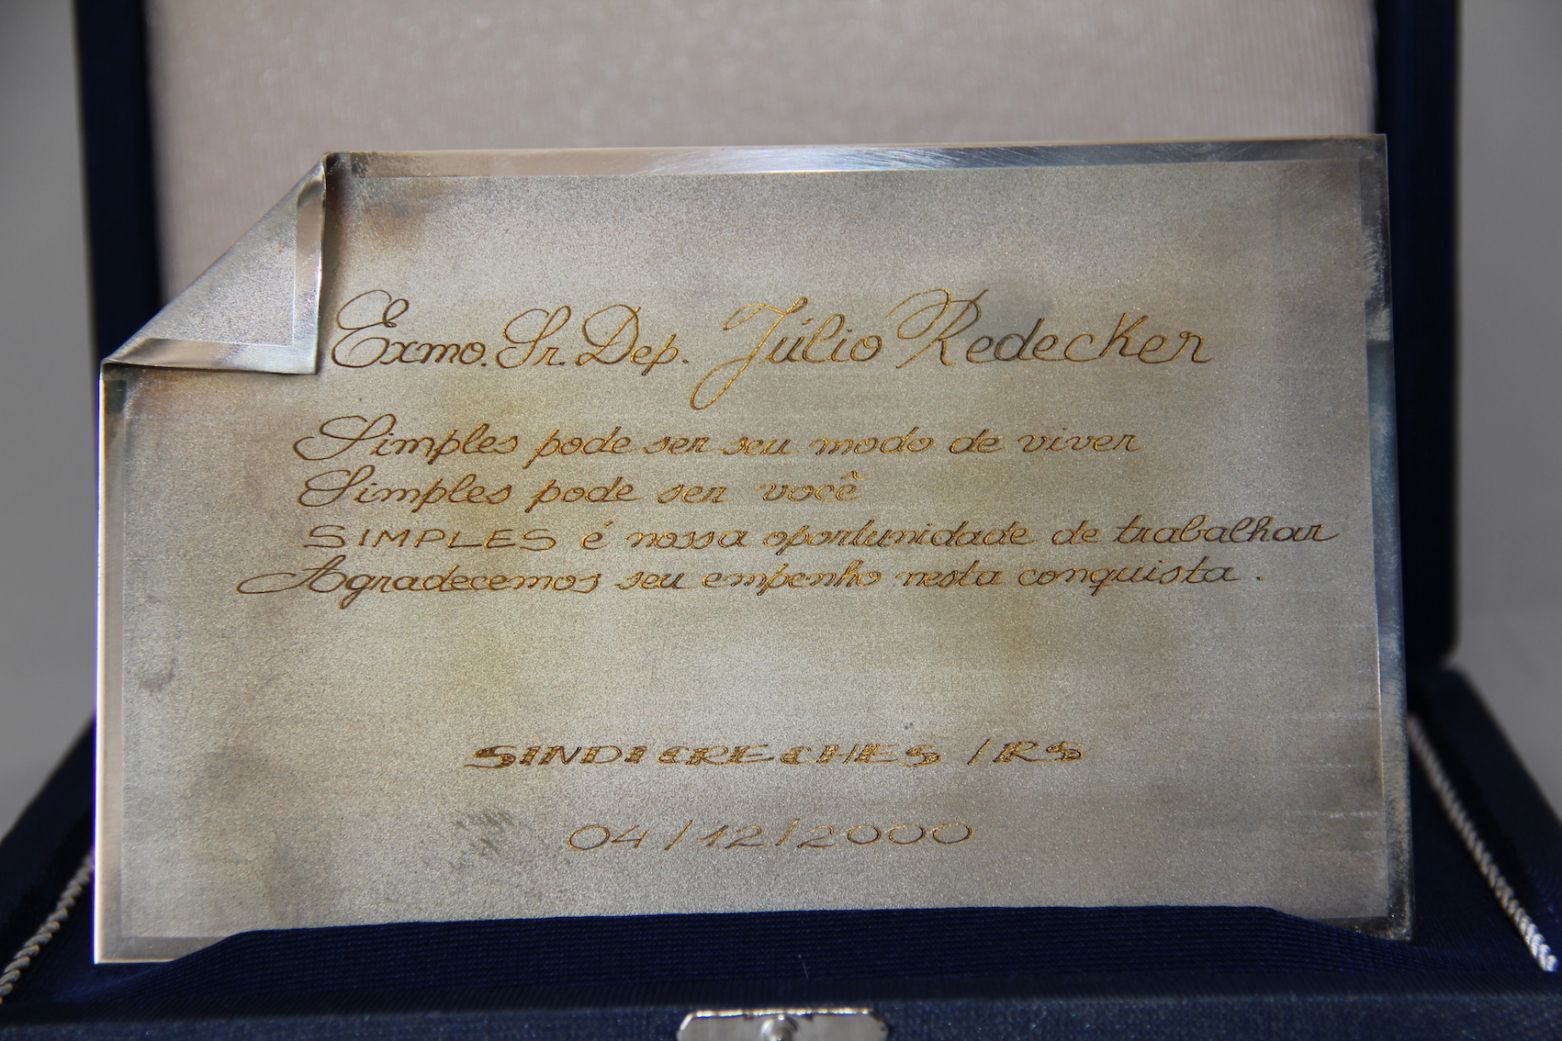 Exmo. Sr. Dep. Júlio Redecker
Simples pode ser seu modo de viver
Simples pode ser você
SIMPLES é nossa oportunidade de trabalhar
Agradecemos seu empenho nesta conquista.
SINDICRECHES/RS
04/12/2000